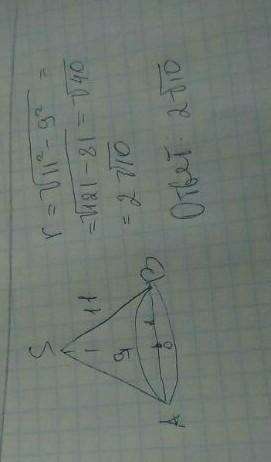 r = √11² - 9² =
= √121 - 81 = √40
= 2√10
Ответ: 2√10
S
11
9
r
O
A
B